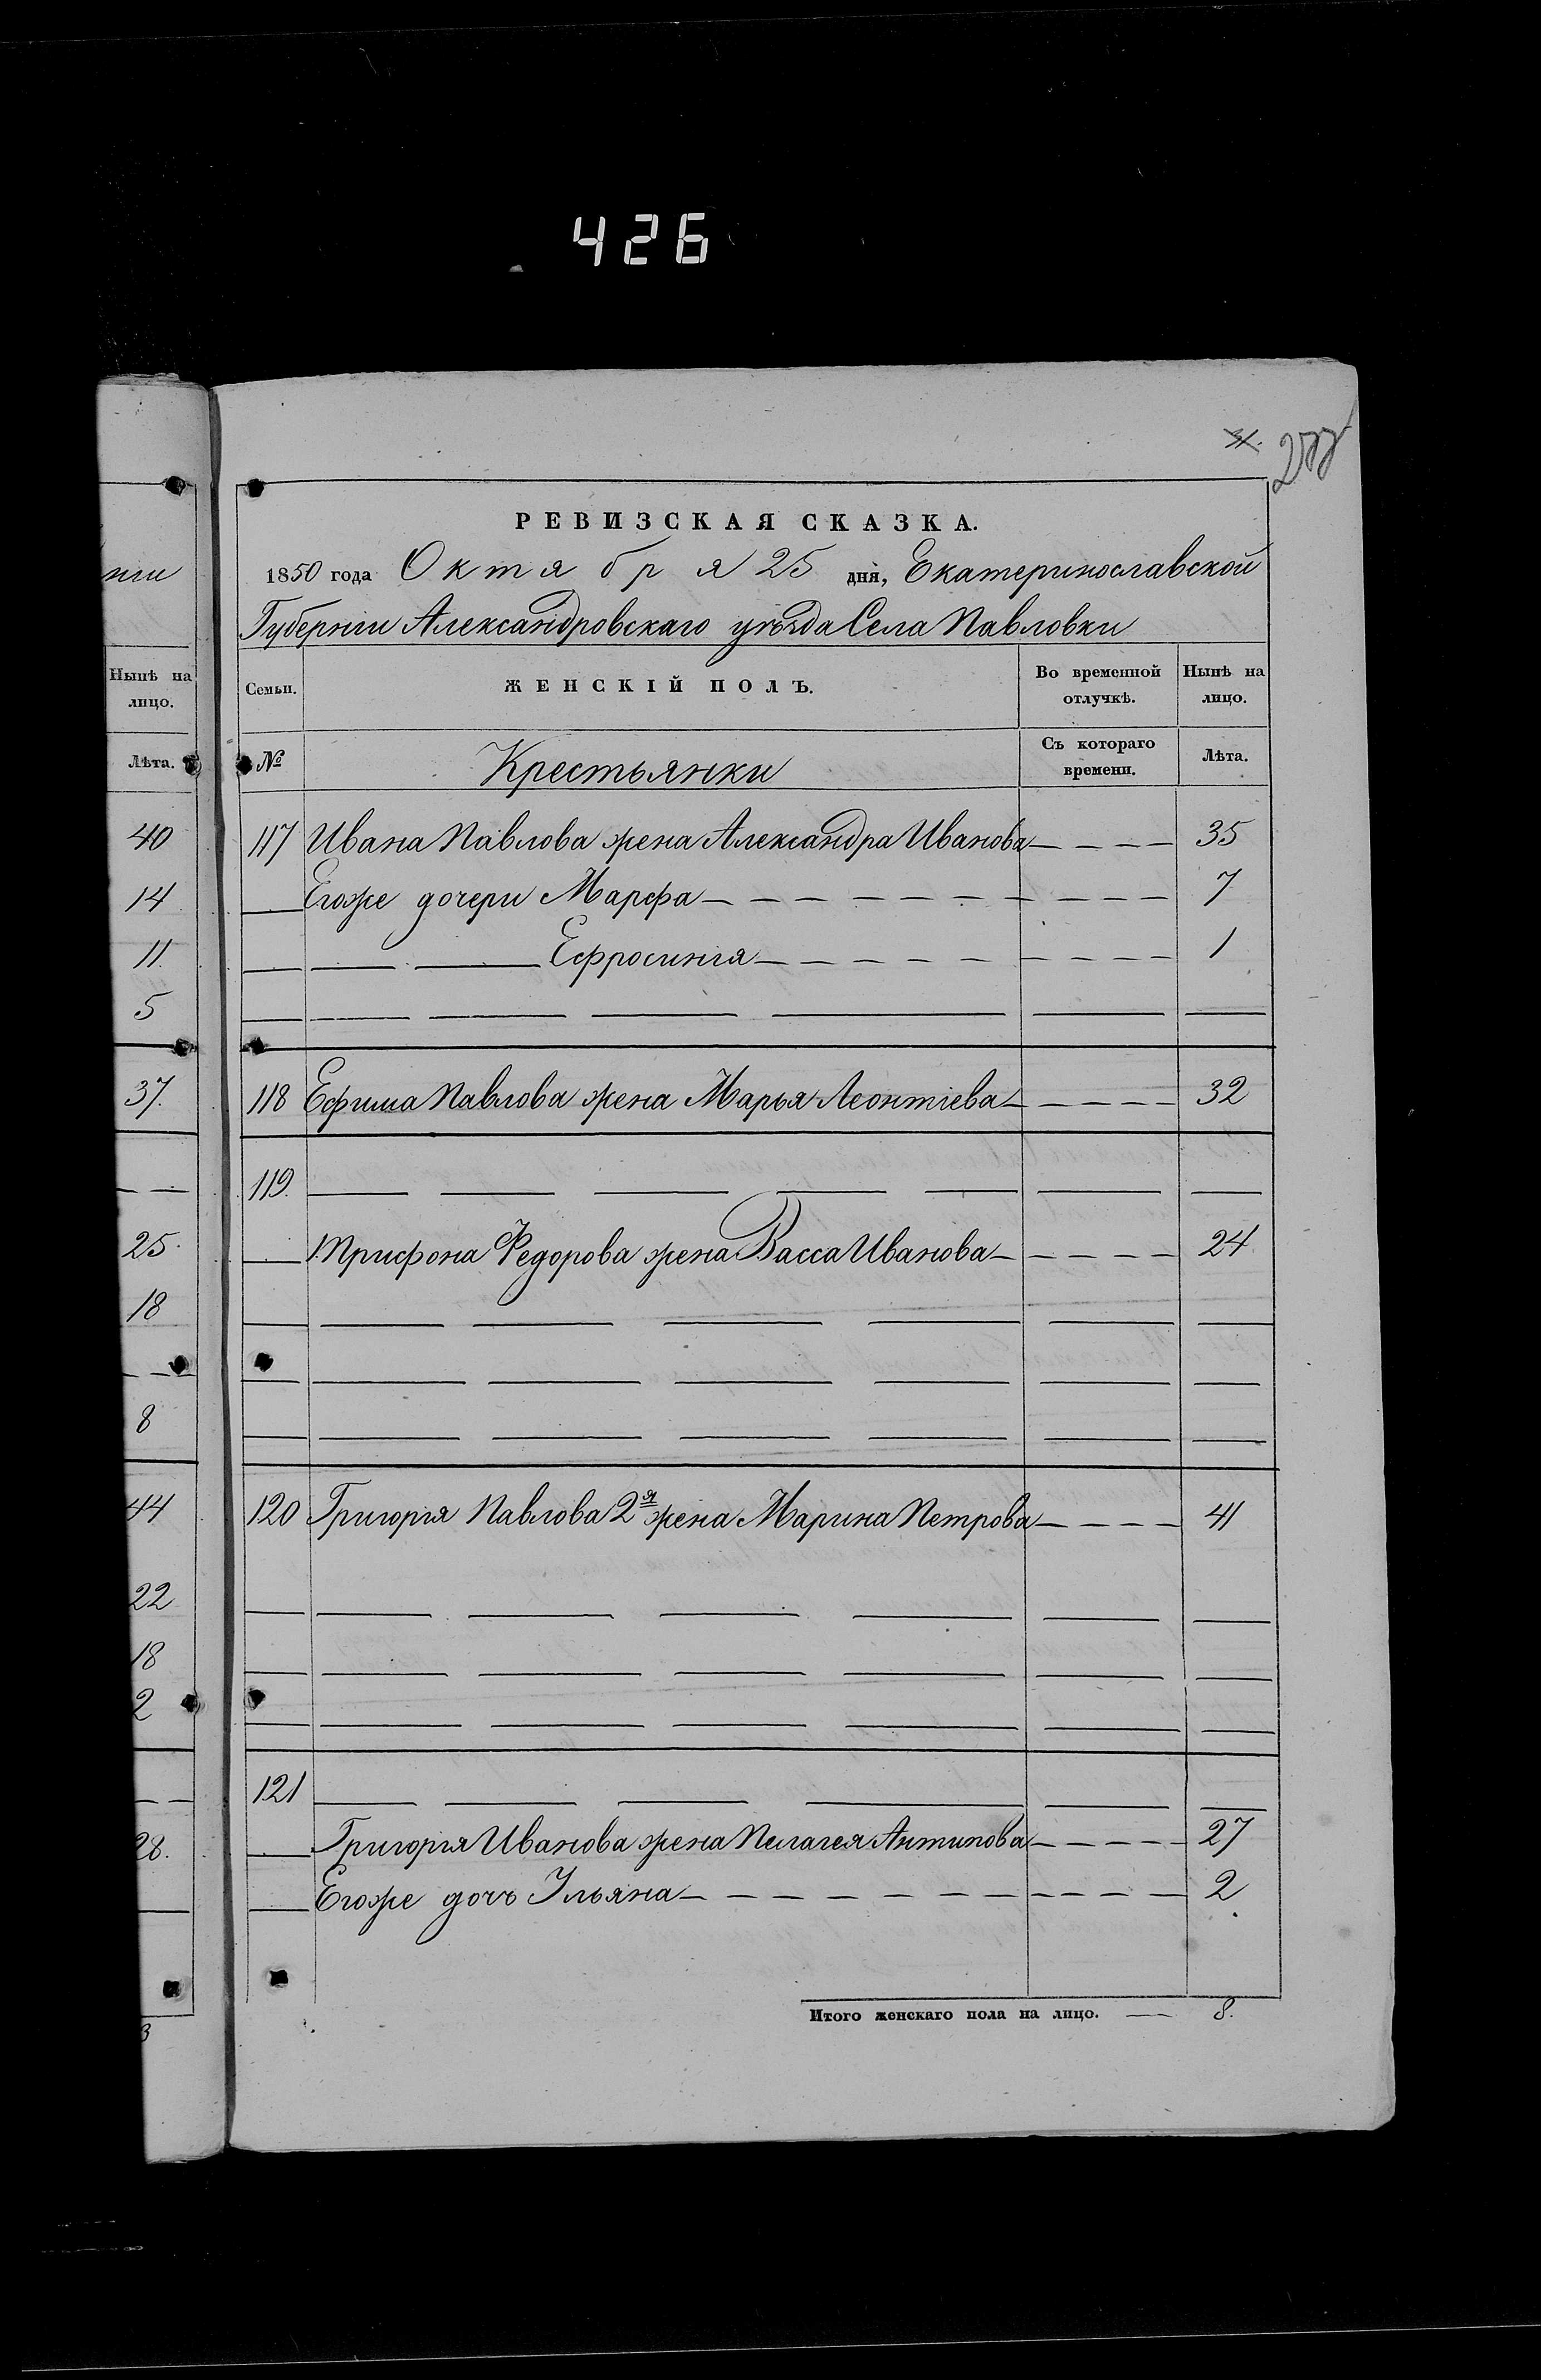 426
277
РЕВИЗСКАЯ СКАЗКА.
1850 года Октября 25 дня, Екатеринославской
Губернiи Александровскаго уѣзда Села Павловки
Семьи. ЖЕНСКІЙ ПОЛЪ. Во временной отлучкѣ. Нынѣ на лицо.
№ Крестьянки Съ котораго времени. Лѣта.
117 Ивана Павлова жена Александра Иванова 35
Егоже дочери Марфа 7
Ефросинiя 1
118 Ефима Павлова жена Марья Леонтiева 32
119.
Трифона Федорова жена Васса Иванова 24
120 Григорiя Павлова 2я жена Марина Петрова 41
121
Григорiя Иванова жена Пелагея Антипова 27
Егоже дочь Ульяна 2
Итого женскаго пола на лицо. 8.
нiи
Нынѣ на
лицо.
Лѣта.
40
14
11
5
37.
25
18
8
44
22
18
2
28.
3